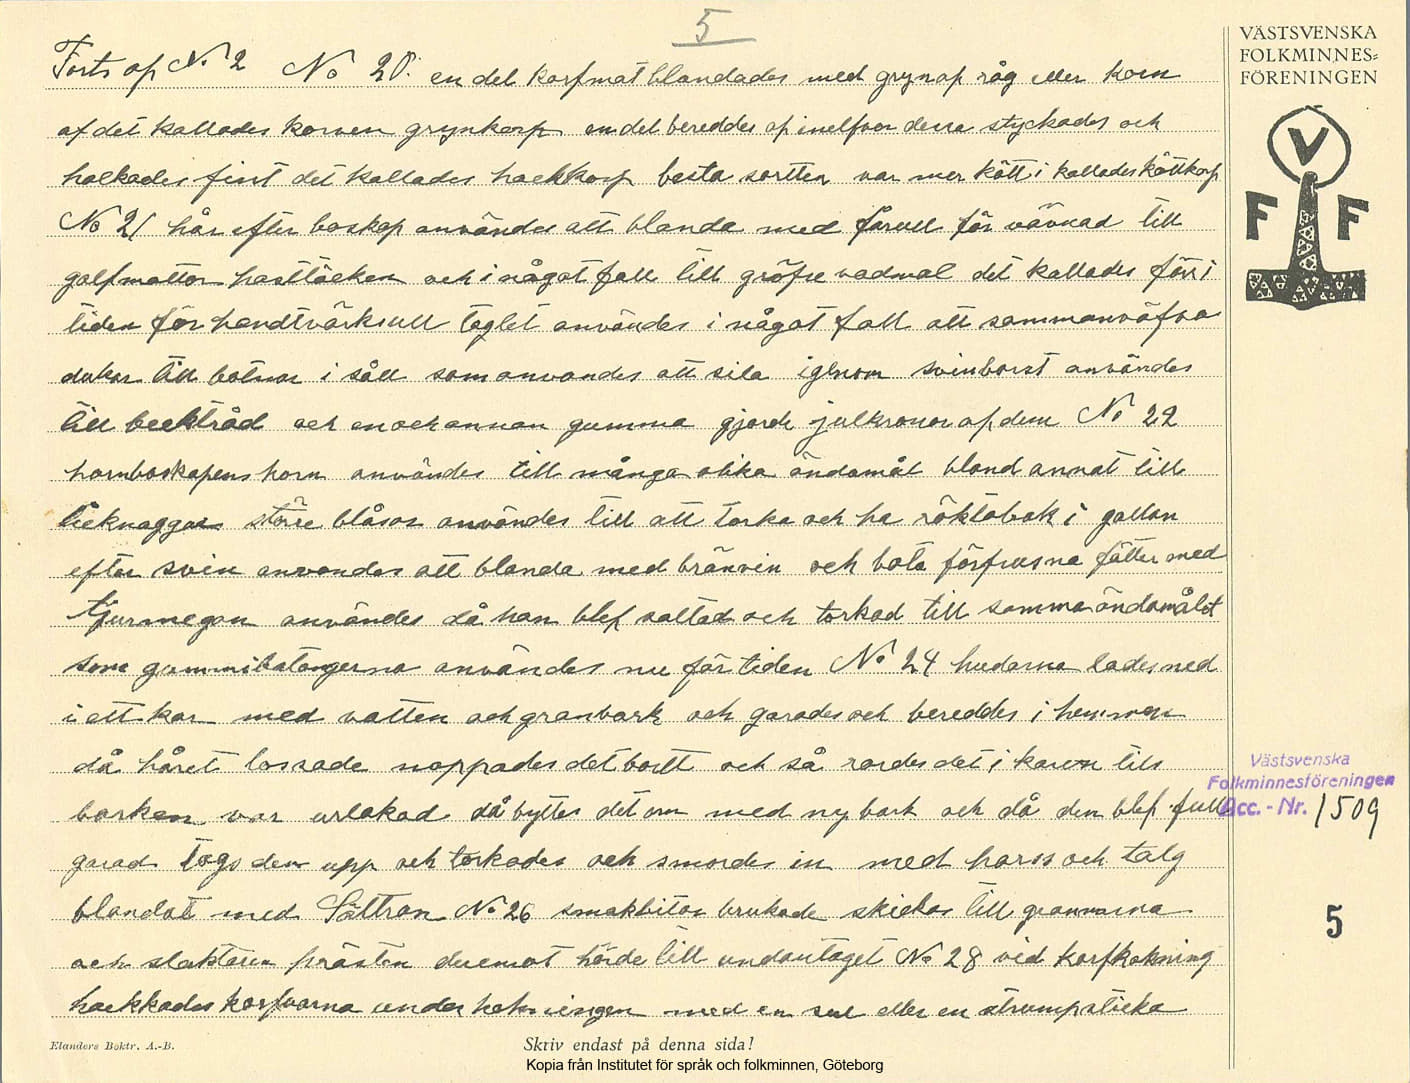 5
VÄSTSVENSKA
FOLKMINNES=
FÖRENINGEN
V
F F
Forts af No 2 No 20. en del korfmat blandades med gryn af råg eller korn
af det kallades korven grynkorf en del bereddes af inelfvor dessa styckades och
hakades fint det kallades hackkorf besta sortten var mer kött i kallades köttkorf
No 21 hår efter boskap användes att blanda med fårull för vävnad till
golfmattor hästtäcken och i något fall till gröfre vadmal det kallades förr i
tiden för handtvärksull taglet användes i något fall att sammanväfva
dukar till botnar i såll som anvandes att sila igenom svinborst användes
till becktråd och en och annan gumma gjorde julkronor af dem No 22
hornboskapens horn användes till många olika ändamål bland annat till
lieknaggar större blåsor användes till att torka och ha röktobak i gallan
efter svin anvandes att blanda med bränvin och bota förfrusna fötter med
tjurmegan användes då han blef saltad och torkad till samma ändamålet
som gummibatongerna användes nu för tiden No 24 hudarna lades ned
i ett kar med vatten och granbark och garades och bereddes i hemmen
då håret lossade noppades det bortt och så rordes det i karen tills
barken var urlakad då byttes det om med ny bark och då den blef full
garad togs den upp och torkades och smordes in med harss och talg
blandat med Sältran No 26 smakbitar brukade skickas till grannarna
och slaktaren prästen deremot hörde till undantaget No 28 vid korfkokning
hackkades korfvarna under kokningen med en sul eller en strumpsticka
Västsvenska
Folkminnesföreningen
Acc. - Nr. 1509
5
Elanders Boktr. A.-B.
Skriv endast på denna sida!
Kopia från Institutet för språk och folkminnen, Göteborg